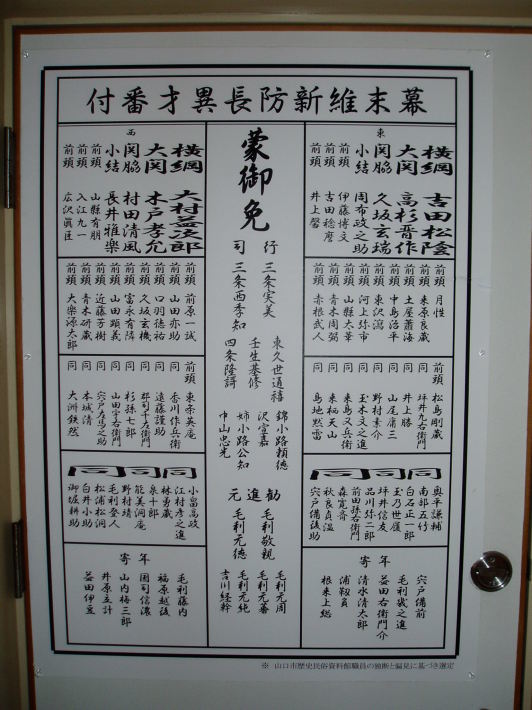 幕末維新防長異才番付
東
横綱 吉田松陰
大関 高杉晋作
関脇 久坂玄瑞
小結 周布政之助
前頭 伊藤博文
前頭 吉田稔麿
前頭 井上馨
前頭 月性
前頭 来原良蔵
前頭 土屋蕭海
前頭 中島治平
前頭 東沢瀉
前頭 河上弥市
前頭 山県太華
前頭 青木周弼
前頭 赤根武人
前頭 松島剛蔵
同 坪井九右衛門
同 井上勝
同 山尾庸三
同 野村素介
同 玉木文之進
同 来島又兵衛
同 来栖天山
同 島地黙雷
同同同
奥平謙輔
南部五竹
白石正一郎
玉乃世履
坪井信友
品川弥二郎
前田孫右衛門
森寛斎
秋良貞温
宍戸備後助
年寄
宍戸備前
毛利幾之進
益田右衛門介
清水清太郎
浦靱負
根来上総
蒙御免
行司
三条実美
三条西季知
東久世通禧
壬生基修
四条隆謌
錦小路頼徳
沢宣嘉
姉小路公知
中山忠光
勧進元
毛利敬親
毛利元徳
毛利元周
毛利元蕃
毛利元純
吉川経幹
西
横綱 大村益次郎
大関 木戸孝允
関脇 村田清風
小結 長井雅楽
前頭 山縣有朋
前頭 入江九一
前頭 広沢眞臣
前頭 前原一誠
前頭 山田亦助
前頭 口羽徳祐
前頭 久坂玄機
前頭 富永有隣
前頭 山田顕義
前頭 近藤芳樹
前頭 青木研蔵
前頭 大楽源太郎
前頭 東条英庵
同 香川作兵衛
同 遠藤謹助
同 郡司千左衛門
同 杉孫七郎
同 山田宇右衛門
同 宍戸左馬之助
同 本城清
同 大洲鉄然
同同同
小畠高政
江村彦之進
林勇蔵
泉十郎
能美洞庵
野村靖
毛利登人
松浦松洞
白井小助
御堀耕助
年寄
毛利藤内
福原越後
国司信濃
山内梅三郎
井原主計
益田伊豆
※ 山口市歴史民俗資料館職員の独断と偏見に基づき選定